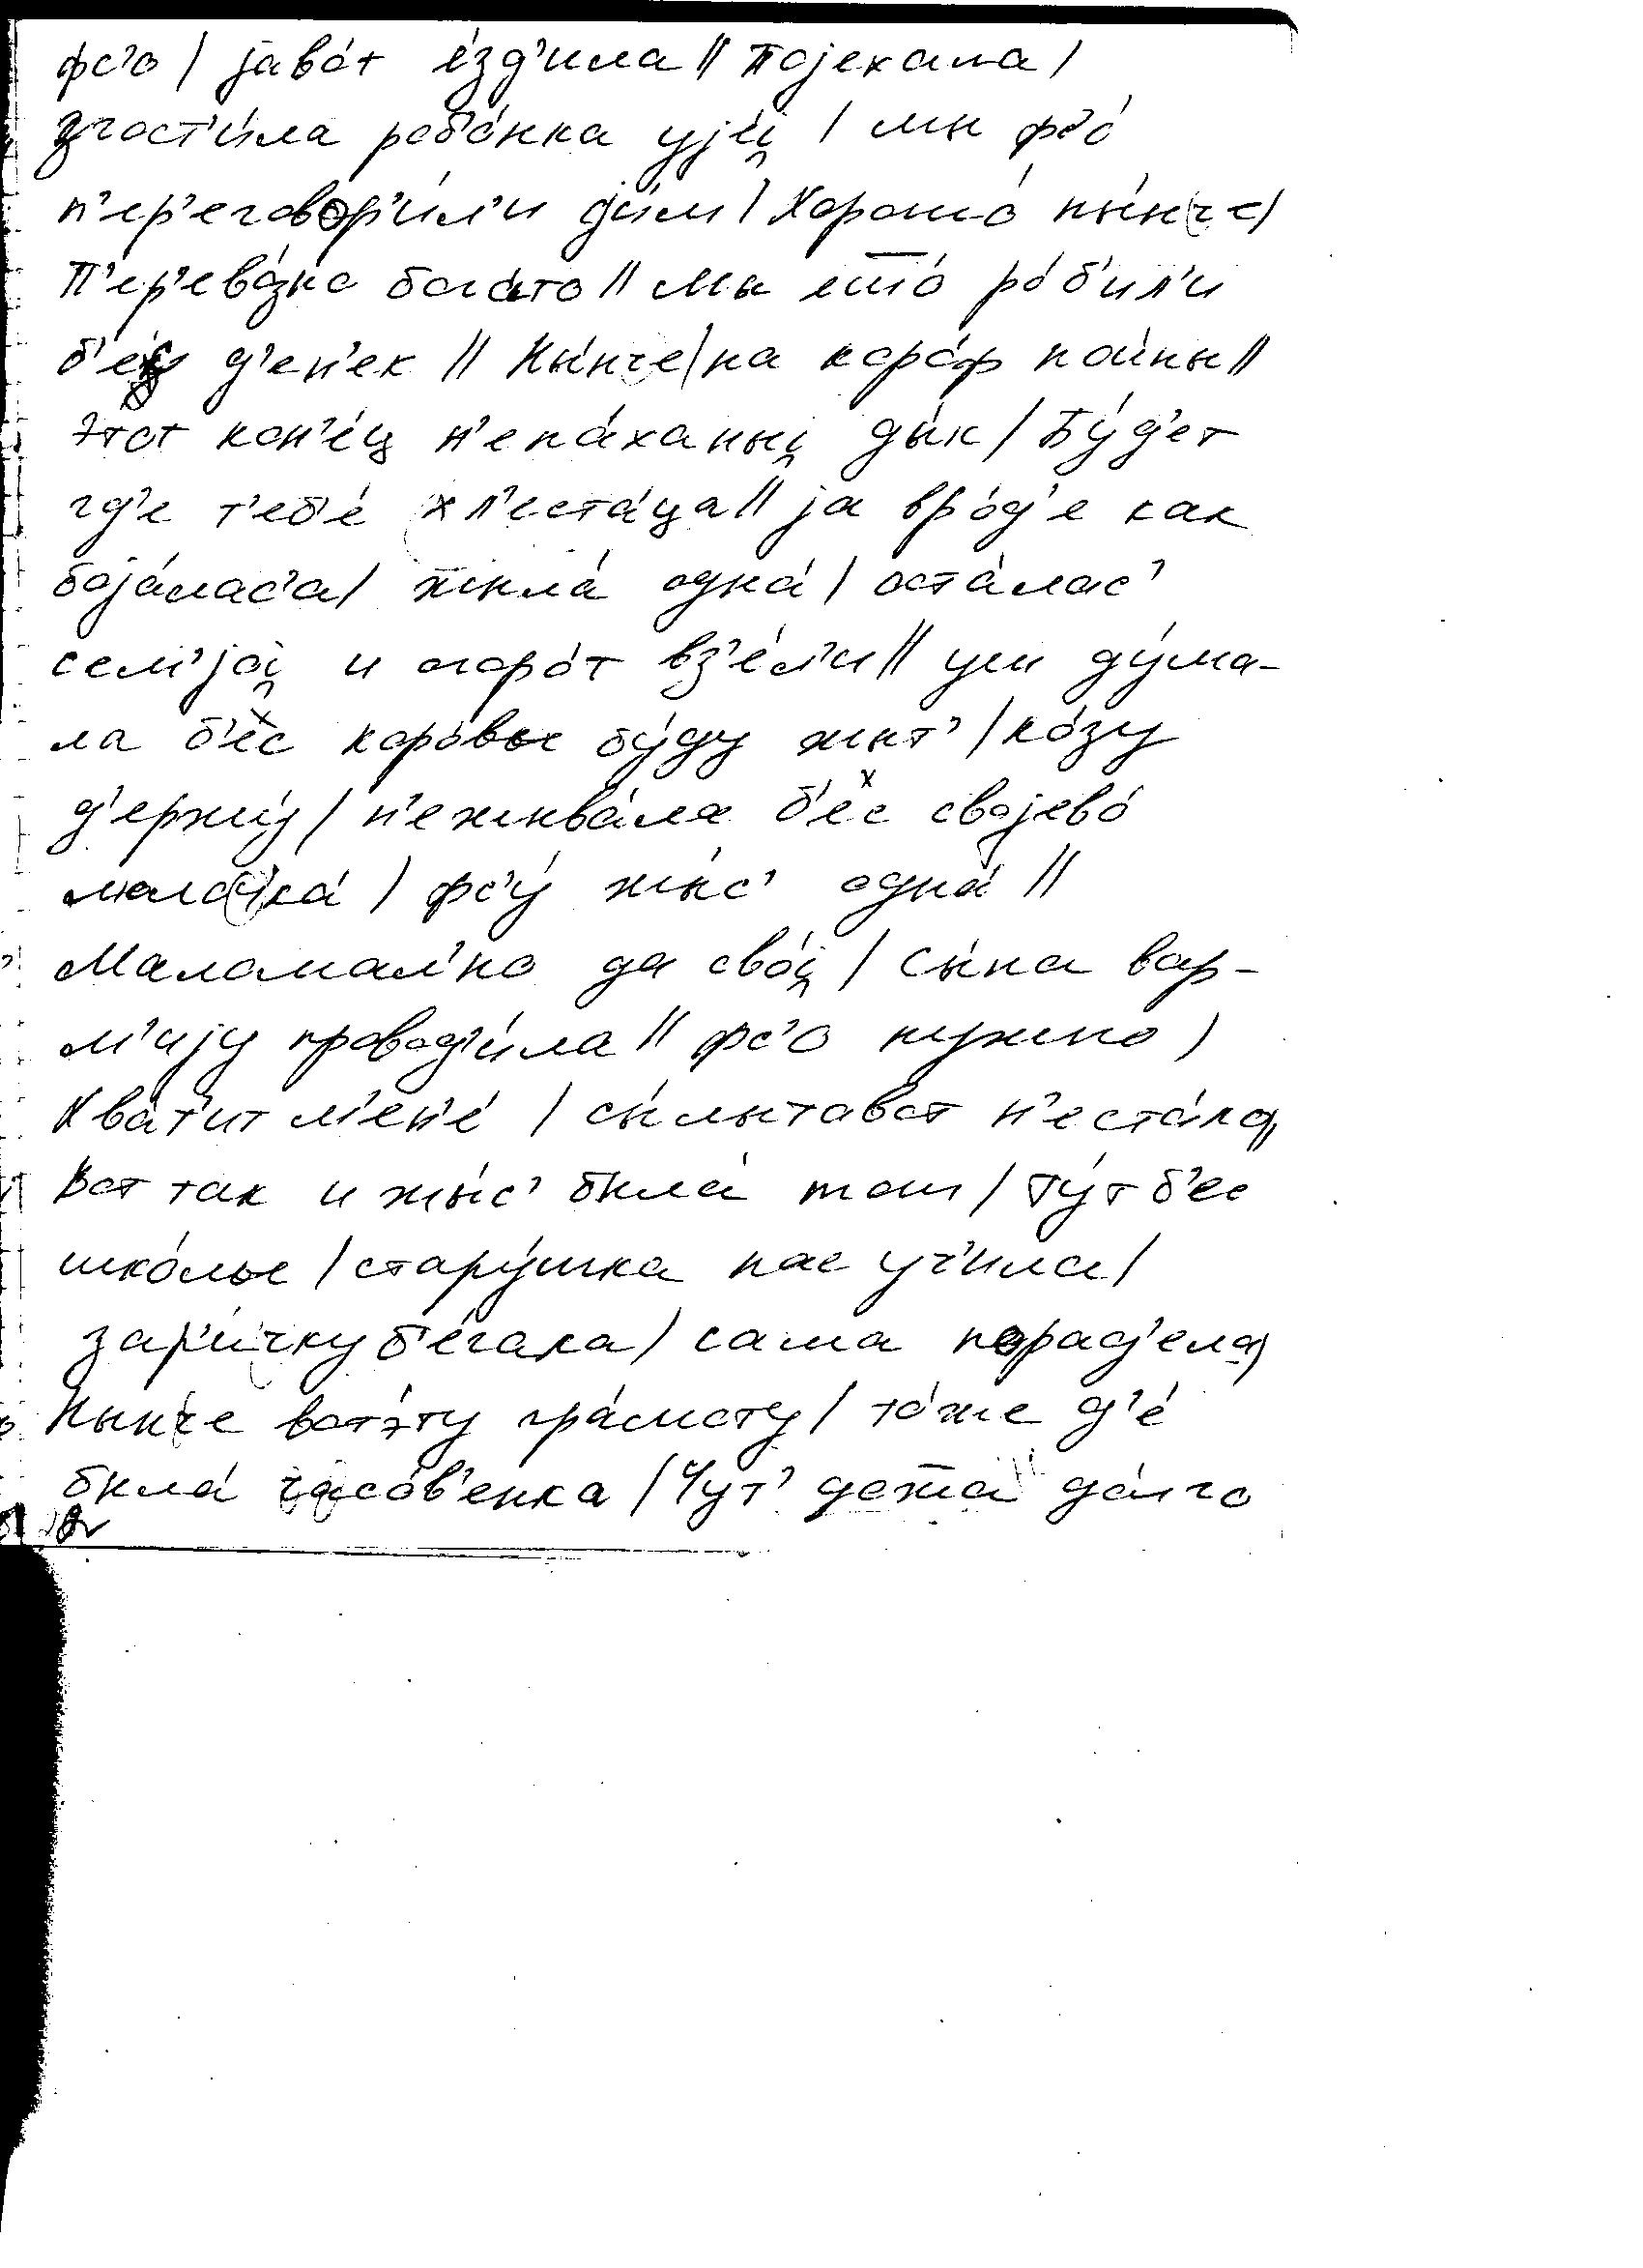 фс'о / јаво́т е́зд'ила // појехала /
згост'и́ла роб'о́нка ујéį / мы фс'о́
п'ер'еговор'и́л'и ди́м / Хорошо́ ны́нче /
П'ер'ево́зно бога́то // мы што́ ро́б'ил'и
б'éз д'ен'ек // Ны́нче / на коро́ф
Э́тот кон'е́ц н'епа́ханыį ды́к / Бу́д'ет
гд'е т'еб'е́ хл'еста́ца // ја вро́д'е как
боја́лас'а / жыла́ одна́ / оста́лас'
сем'јоį и огоро́т вз'е́л'и // уш ду́ма-
ла б'ес коро́вы бу́ду жыт' / ко́зу
д'ержу́ / н'ежыва́ла б'ес својево́
молочка́ / фс'у́ жы́с' одна́ //
Маломал'но да сво́į / Сы́на вар-
м'ију провод'и́ла // фс'о нужно /
Хва́т'ит м'ен'е́ / си́лытавот н'еста́ло //
Вот так и жы́с' была́ / Ту́т б'ес
шко́лы / стару́шка нас уч'ила /
зар'и́чку б'е́гала / сама порад'ела /
Нынче вотэ́ту гра́моту / то́же д'е́
была́ часо́в'енка / Чут' до́лго